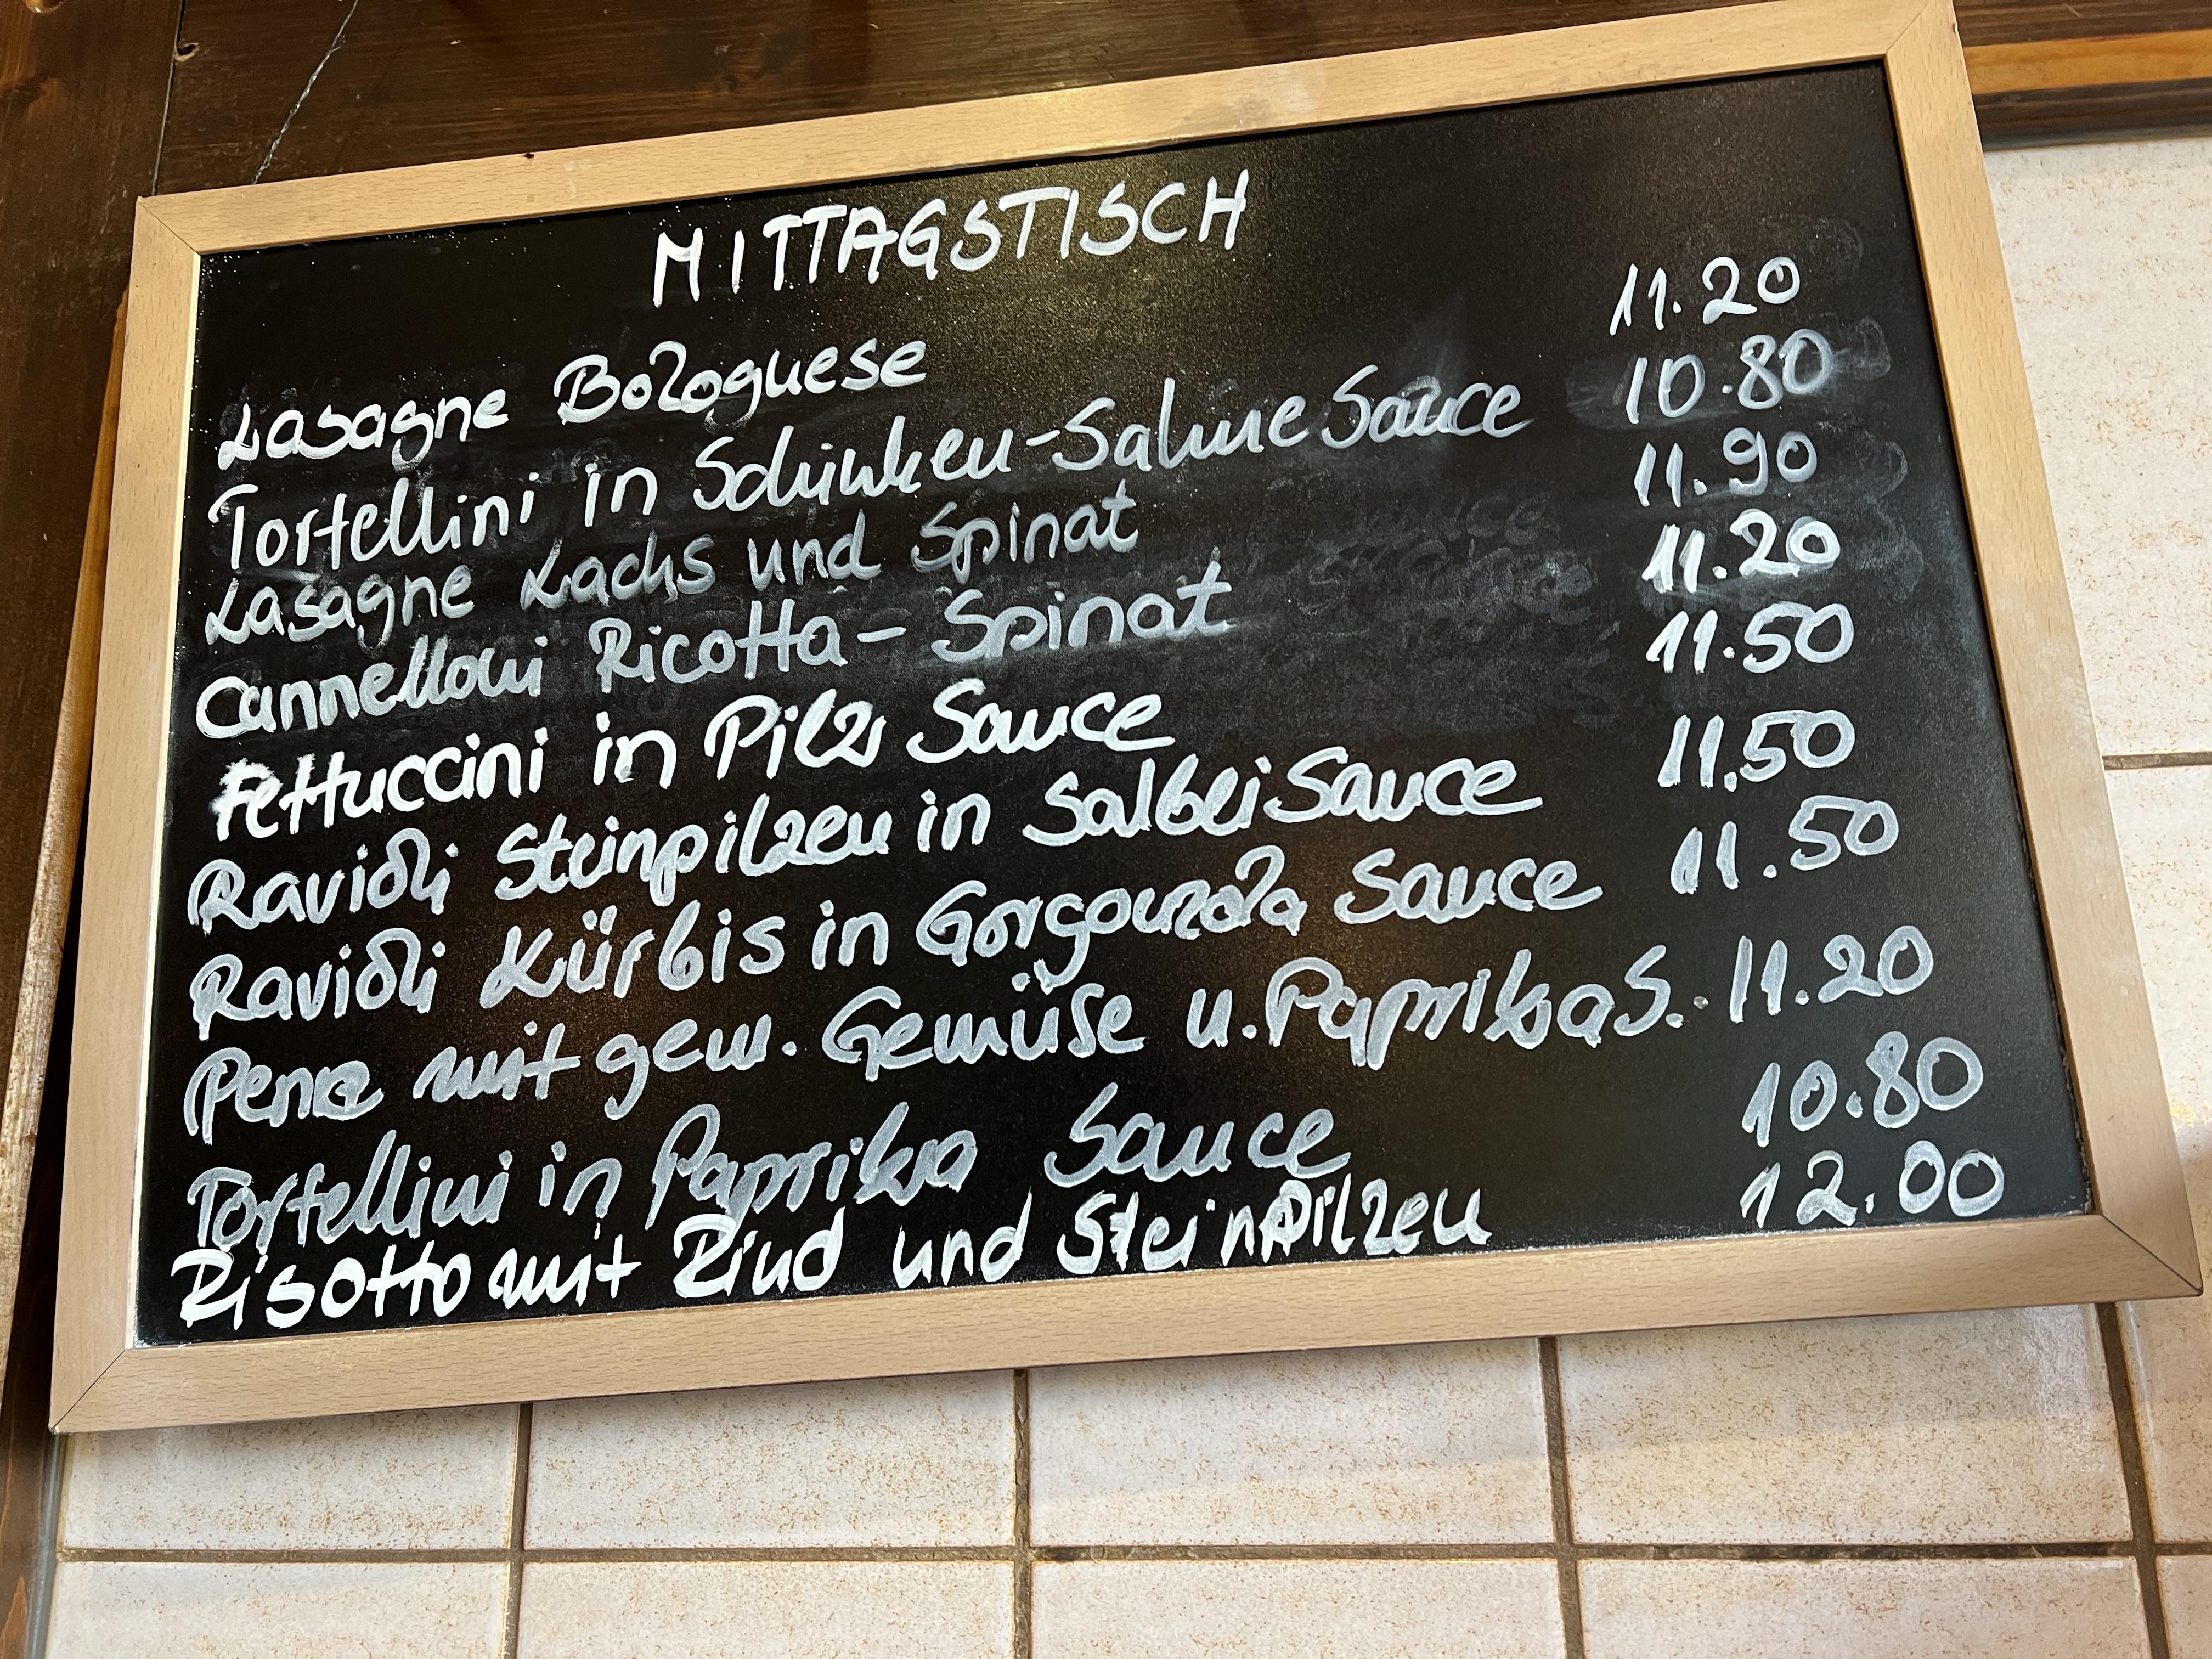 MITTAGSTISCH
Lasagne Bolognese 11.20
Tortellini in Schinken-Sahne Sauce 10.80
Lasagne Lachs und Spinat 11.90
Cannelloni Ricotta-Spinat 11.20
Fettuccini in Pilz Sauce 11.50
Ravioli Steinpilzen in Salbei Sauce 11.50
Ravioli Kürbis in Gorgonzola Sauce 11.50
Penne mit gem. Gemüse u. Paprika S.. 11.20
Tortellini in Paprika Sauce 10.80
Risotto mit Rind und Steinpilzen 12.00